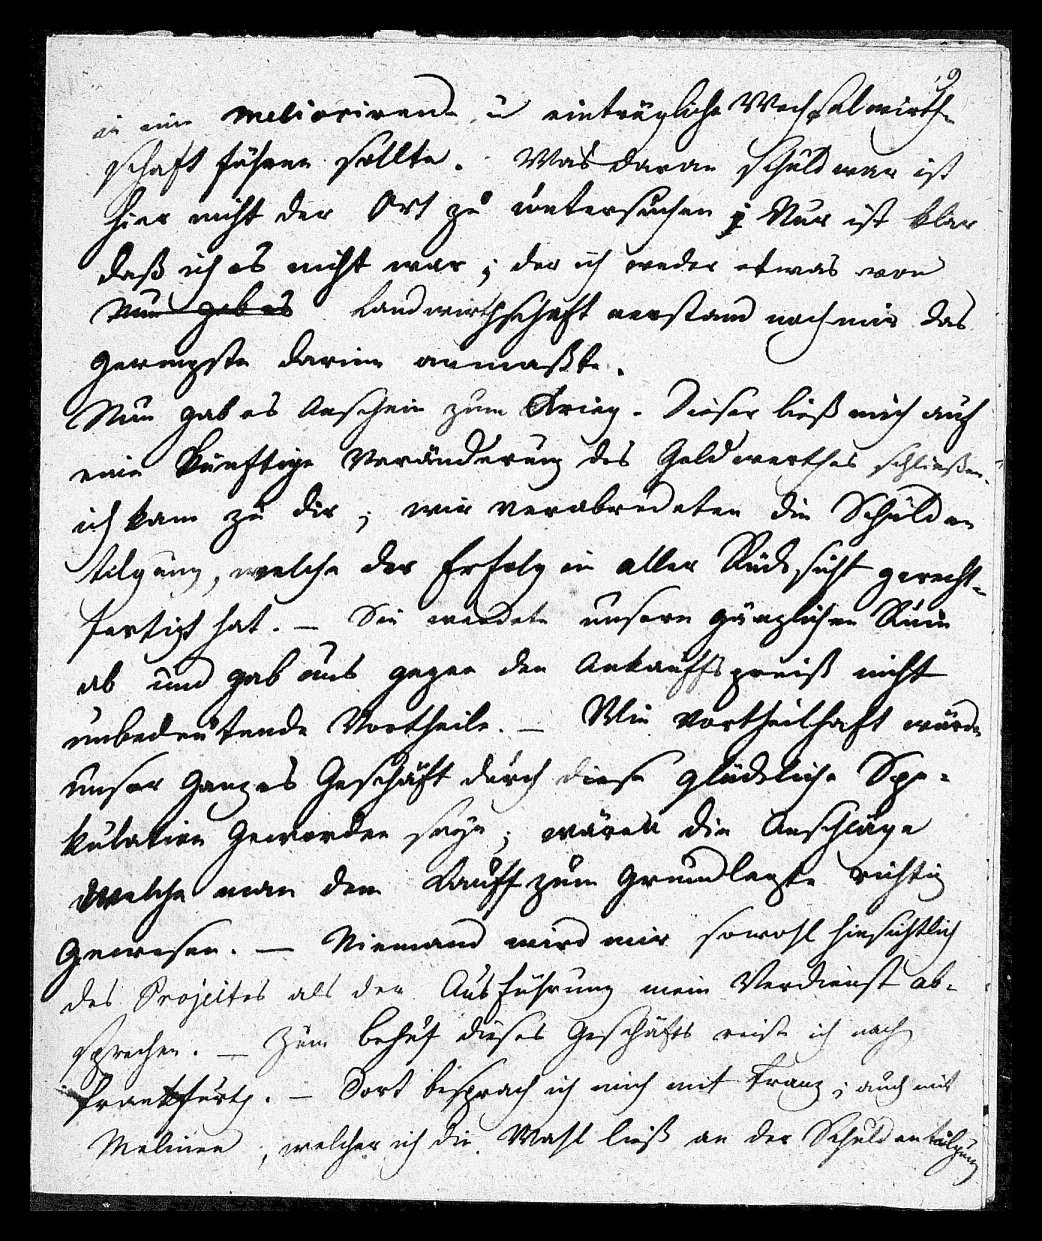 9
in eine meliorirende u einträgliche Wechselwirth
schaft führen sollte. Was daran schuld war ist
hier nicht der Ort zu untersuchen; Nur ist klar
daß ich es nicht war; der ich weder etwas von
Nun gab es Landwirthschaft verstand noch mir das
geringste darinn anmaßte.
Nun gab es Anschein zum Krieg. Dieser ließ mich auf
eine künftige Veränderung des Geldwerthes schließen.
ich kam zu dir; wir verabredeten die Schulden
tilgung, welche der Erfolg in aller Rücksicht gerecht-
fertigt hat. — Sie wendete unsern gänzlichen Ruin
ab und gab uns gegen den Ankauffspreiß nicht
unbedeutende Vortheile. — Wie vortheilhaft würde
unser ganzes Geschäft durch diese glückliche Spe-
kulation geworden seyn; wären die Anschläge
welche man dem Kauff zum Grund legte richtig
gewesen. — Niemand wird mir sowohl hinsichtlich
des Projectes als der Ausführung mein Verdienst ab-
sprechen. — Zum Behuf dieses Geschäfts reiste ich nach
Frankfurth. — Dort besprach ich mich mit Franz; auch mit
Melinen, welcher ich die Wahl ließ an der Schuldentilgung